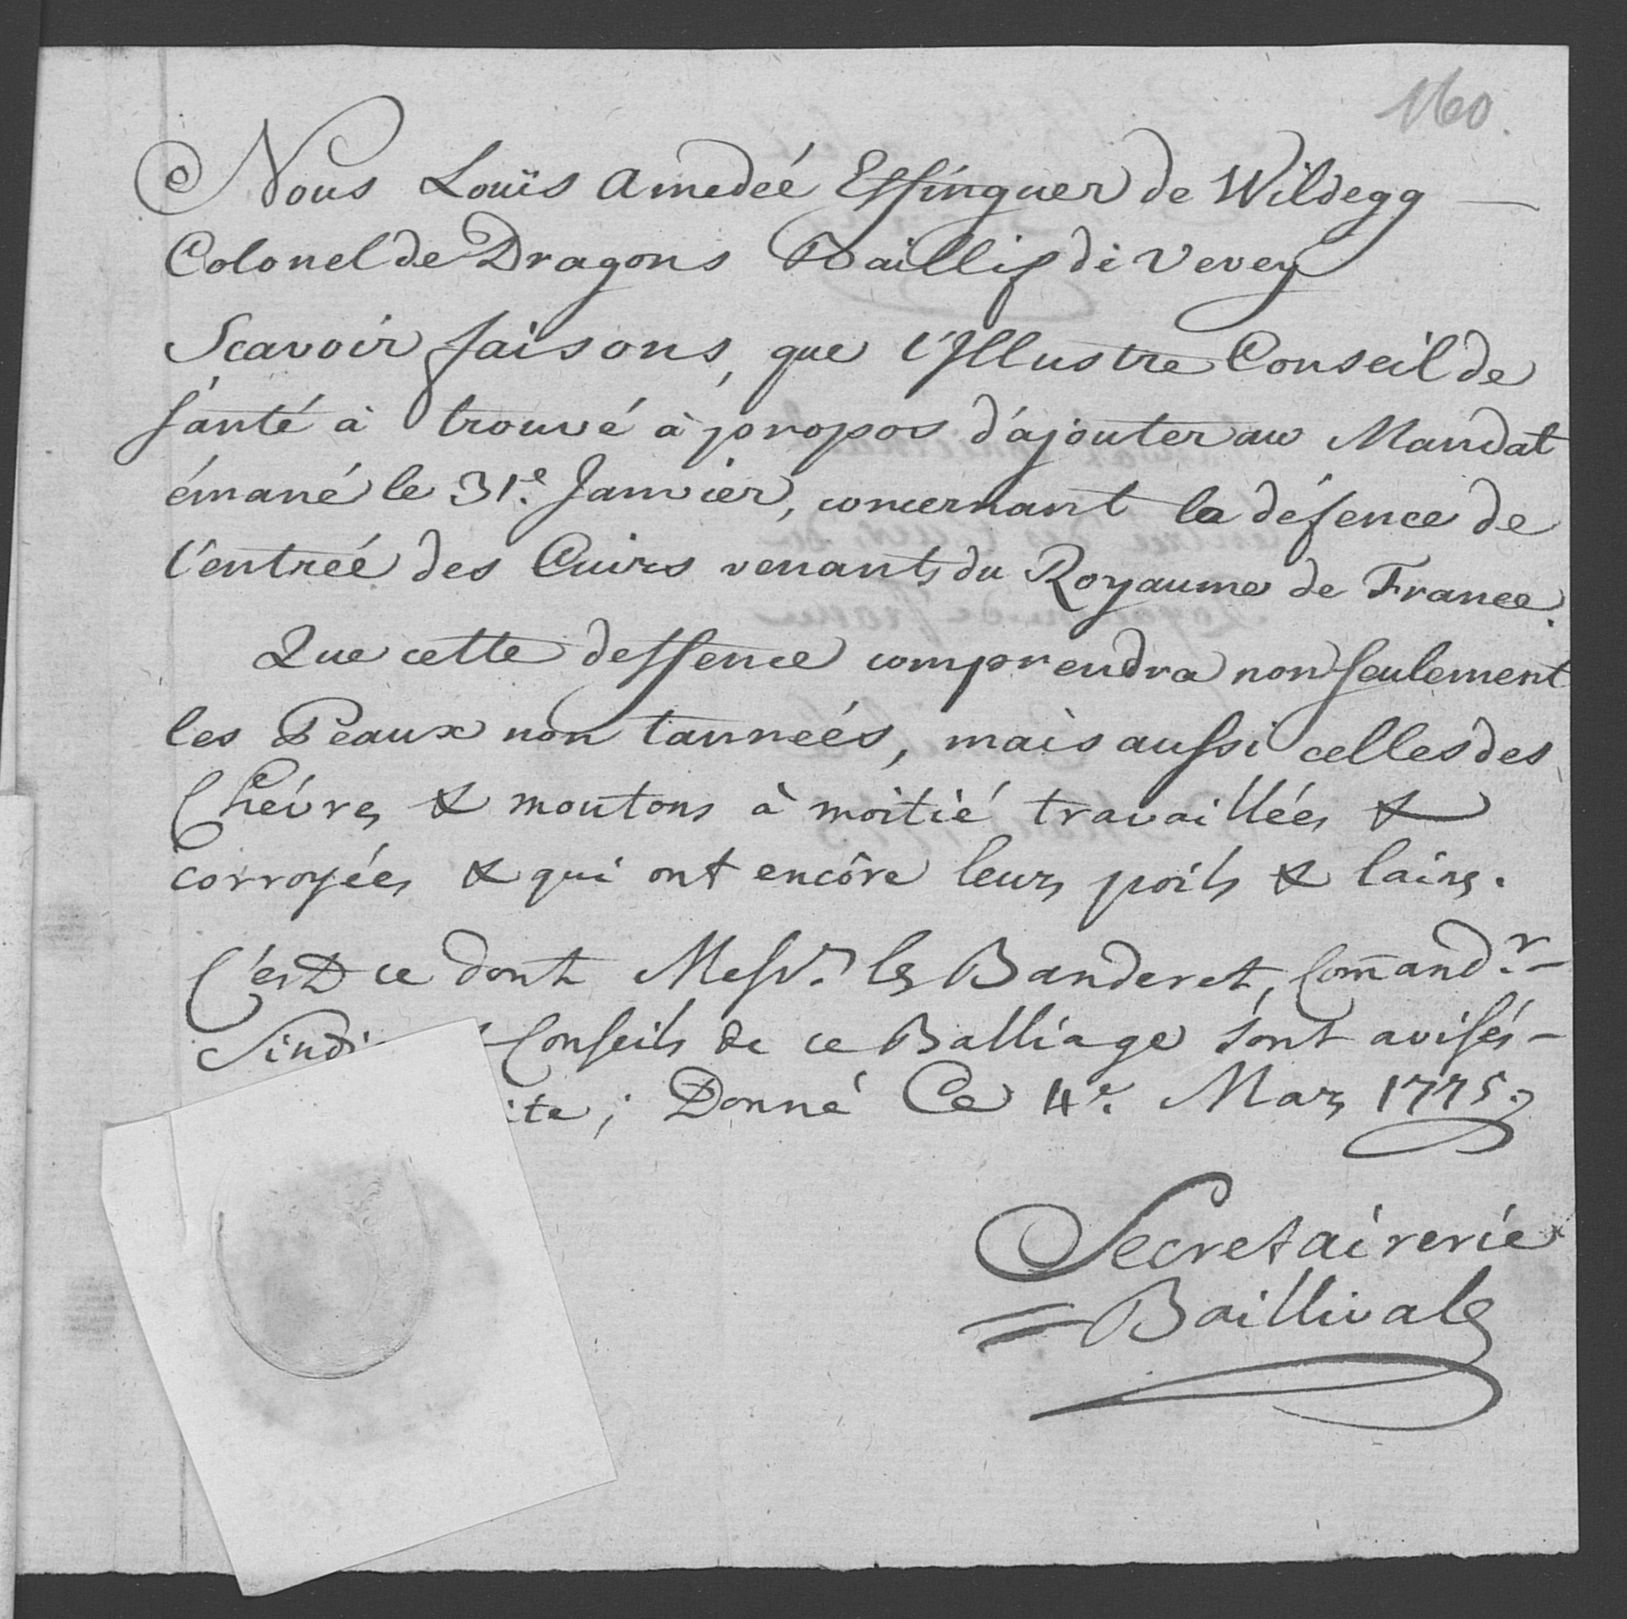 160.
Nous Louïs Amedeé Effinguer de Wildegg
Colonel de Dragons Baillif de Vevey
Scavoir faisons, que l'Illustre Conseil de
santé à trouvé à propos d'ajouter au Mandat
émané le 31.e Janvier, concernant la défence de
l'entreé des Cuirs venants du Royaume de France.
Que cette deffence comprendra non seulement
les Peaux non tanneés, mais aussi celles des
Chévres & moutons à moitié travaillées &
corroyées & qui ont encôre leurs poils & laine.
C'est ce dont Messrs. les Banderet, Com̄andr.
Sindi Conseils de ce Balliage sont avisés
ite; Donné Ce 4e. Mars 1775.
Secretairerie
Baillivale